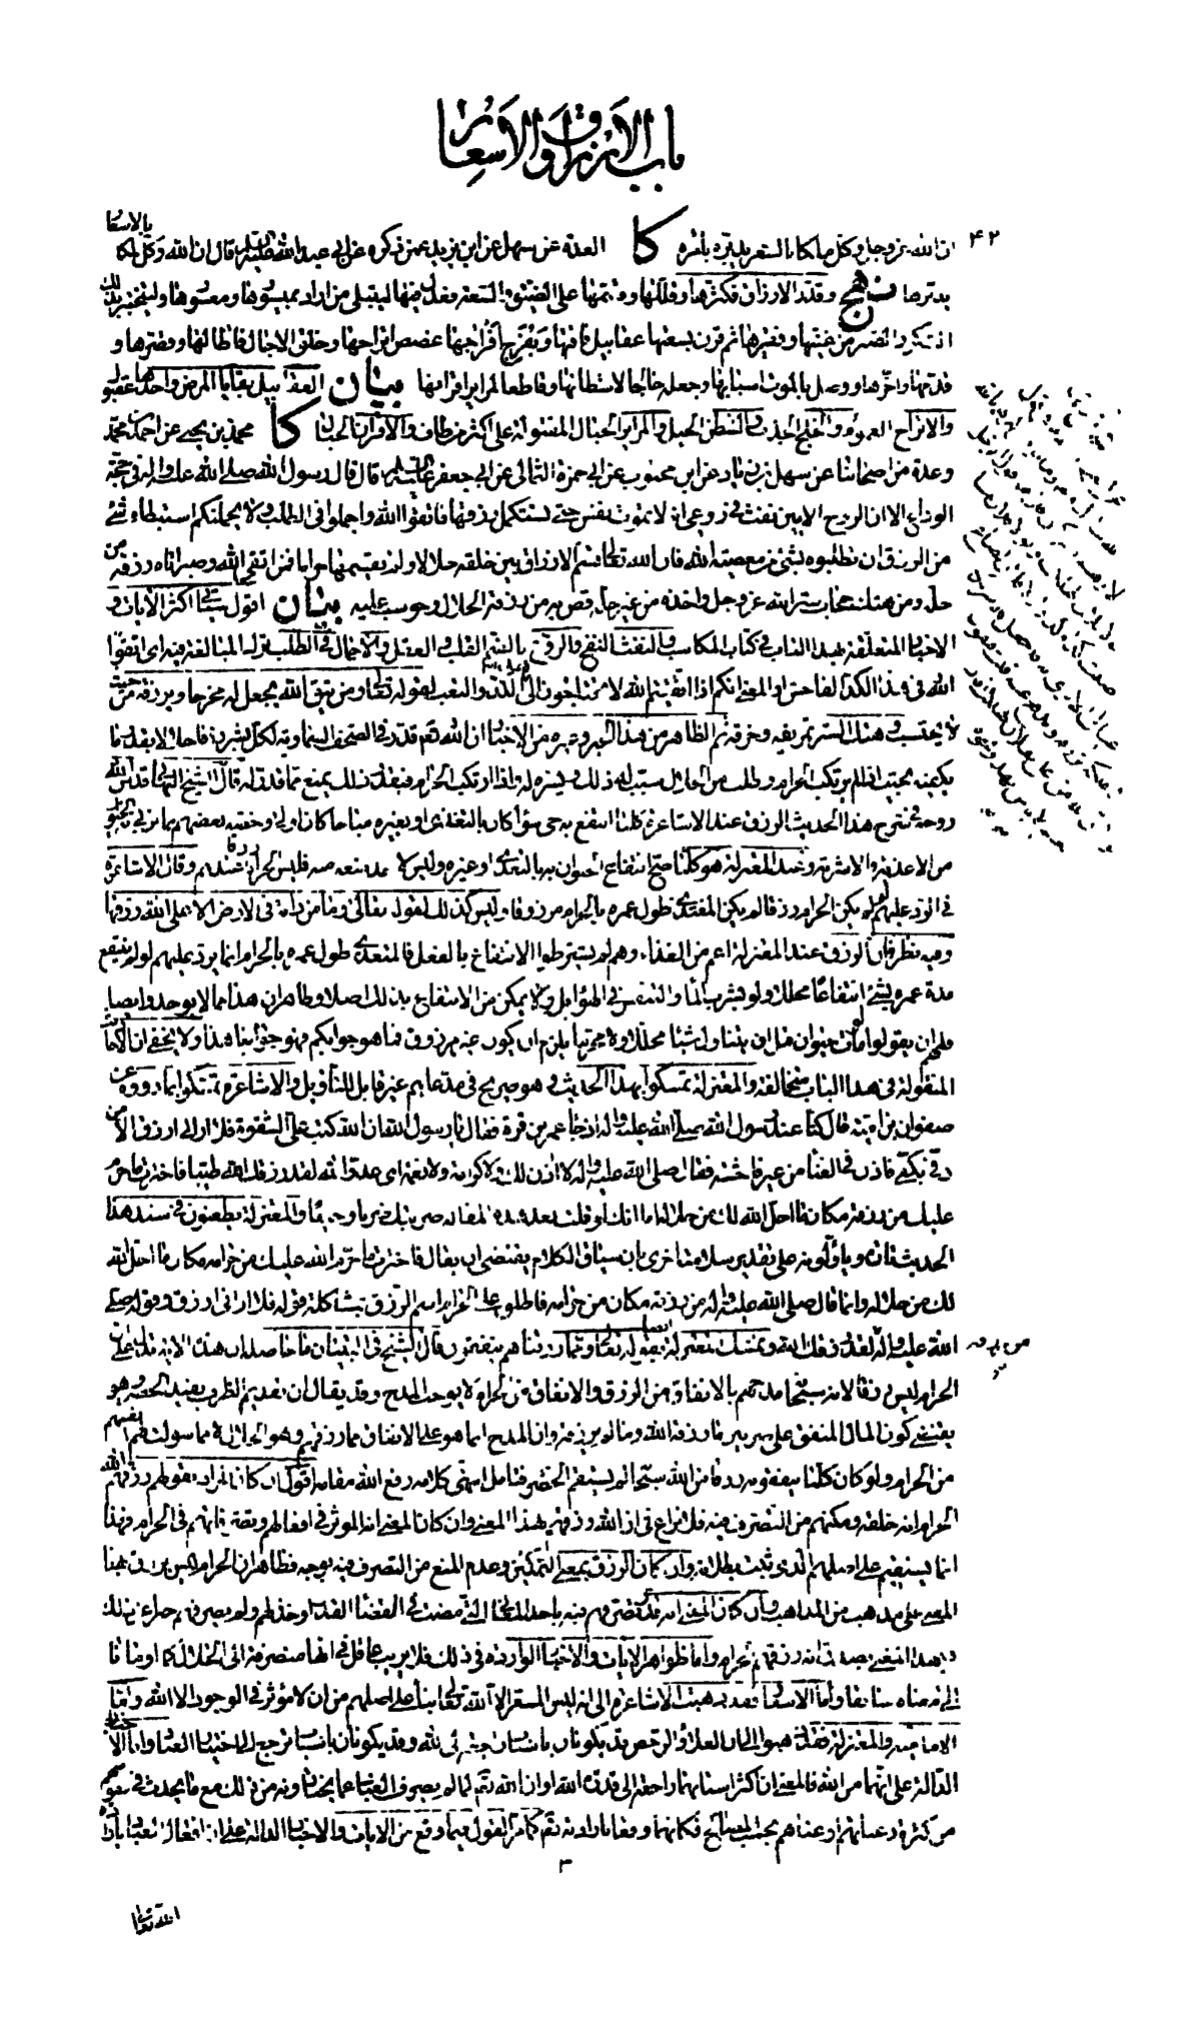 باب الارزاق والاسعار
۴۲
ان الله عز وجل وكل ملكا بالسعر يدبره بأمره كا العدة عن سهل عن ابن يزيد عمن ذكره عن ابى عبد الله عليه السلم قال ان الله وكل ملكا بالاسعار
يدبرها نهج وقدر الارزاق فكثرها وقللها وقسمها على الضيق والسعة فعدل فيها ليبتلى من اراد بميسورها ومعسورها وليختبر بذلك
الشكر والصبر من غنيها وفقيرها ثم قرن بسعتها عقابيل فاقتها وبفرج افراجها غصص اتراحها وخلق الاجال فاطالها وقصرها و
قدمها واخرها ووصل بالموت اسبابها وجعله خالجا لاشطانها وقاطعا لمراير اقرانها بيان العقابيل بقايا المرض واحدها عقبول
والاتراح الغموم والخلج الجذب والشطن الحبل والمراير الحبال المفتولة على اكثر من طاق والاقران الحبال كا محمد بن يحيى عن احمد بن محمد
وعدة من اصحابنا عن سهل بن زياد عن ابن محبوب عن ابى حمزة الثمالى عن ابى جعفر عليه السلم قال قال رسول الله صلى الله عليه واله فى حجة
الوداع الا ان الروح الامين نفث فى روعى انه لا تموت نفس حتى تستكمل رزقها فاتقوا الله واجملوا فى الطلب ولا يحملنكم استبطاء شئ
من الرزق ان تطلبوه بشئ من معصية الله فان الله تعالى قسم الارزاق بين خلقه حلالا ولم يقسمها حراما فمن اتقى الله وصبر اتاه رزقه من
حله ومن هتك حجاب ستر الله عز وجل واخذه من غير حله قص به من رزقه الحلال وحوسب عليه بيان اقول سيأتى اكثر الايات و
الاخبار المتعلقة بهذا الباب فى كتاب المكاسب والنفث النفخ والروع بالضم القلب والعقل والاجمال فى الطلب ترك المبالغة فيه اى اتقوا
الله فى هذا الكد الفاحش او المعنى انكم اذا اتقيتم الله لا تحتاجون الى هذا الكد والتعب لقوله تعالى ومن يتق الله يجعل له مخرجا ويرزقه من حيث
لا يحتسب وهتك الستر تمزيقه وخرقه ثم الظاهر من هذا الخبر وغيره من الاخبار ان الله تعالى قدر فى الصحف السماوية لكل بشر رزقا حلالا بقدر ما
يكفيه بحيث اذا لم يرتكب الحرام وطلب من الحلال سبب له ذلك ويسره له واذا ارتكب الحرام فبقدر ذلك يمنع مما قدر له قال الشيخ البهائى قدس الله
روحه فى شرح هذا الحديث الرزق عند الاشاعرة كلما انتفع به حى سواء كان بالتغذى او بغيره مباحا كان او لا وخصه بعضهم بما تربى به الحيوان
من الاغذية والاشربة وعند المعتزلة هو كلما صح انتفاع الحيوان به بالتغذى او غيره وليس لاحد منعه منه فليس الحرام رزقا عندهم وقال الاشاعرة
فى الرد عليهم لو لم يكن الحرام رزقا لم يكن المغتذى طول عمره بالحرام مرزوقا وليس كذلك لقوله تعالى وما من دابة فى الارض الا على الله رزقها
وفيه نظر فان الرزق عند المعتزلة اعم من الغذاء وهم لم يشترطوا الانتفاع بالفعل فالمغتذى طول عمره بالحرام انما يرد عليهم لو لم ينتفع
مدة عمره بشئ انتفاعا محللا ولو بشرب الماء والتنفس فى الهواء بل ولا تمكن من الانتفاع بذلك اصلا وظاهر ان هذا مما لا يوجد وايضا
فلهم ان يقولوا لو مات حيوان قبل ان يتناول شيئا محللا ولا محرما يلزم ان يكون غير مرزوق فما هو جوابكم فهو جوابنا هذا ولا يخفى ان الاحاديث
المنقولة فى هذا الباب متخالفة والمعتزلة تمسكوا بهذا الحديث وهو صريح فى مدعاهم غير قابل للتأويل والاشاعرة تمسكوا بما رووه عن
صفوان بن امية قال كنا عند رسول الله صلى الله عليه واله اذ جاء عمرو بن قرة فقال يا رسول الله ان الله كتب على الشقوة فلا ارانى ارزق الا من
دفى بكفى فاذن لى فى الغناء من غير فاحشة فقال صلى الله عليه واله لا اذن لك ولا كرامة ولا نعمة اى عدو الله لقد رزقك الله طيبا فاخترت ما حرم
عليك من رزقه مكان ما احل الله لك من حلاله اما انك لو قلت بعد هذه المقالة ضربتك ضربا وجيعا والمعتزلة يطعنون فى سند هذا
الحديث تارة ويأولونه على تقدير سلامته اخرى بان سياق الكلام يقتضى ان يقال فاخترت ما حرم الله عليك من حرامه مكان ما احل الله
لك من حلاله وانما قال صلى الله عليه واله من رزقه مكان من حرامه فاطلق على الحرام اسم الرزق بمشاكلة قوله فلا ارانى ارزق وقوله صلى
الله عليه واله لقد رزقك الله وتمسك المعتزلة ايضا بقوله تعالى ومما رزقناهم ينفقون قال الشيخ فى التبيان ما حاصله ان هذه الاية تدل على ان
الحرام ليس رزقا لانه سبحانه مدحهم بالانفاق من الرزق والانفاق من الحرام لا يوجب المدح وقد يقال ان تقديم الظرف يفيد الحصر وهو
يقتضى كون المال المنفق على ضربين ما رزقه الله وما لم يرزقه وان المدح انما هو على الانفاق مما رزقهم وهو الحلال لا مما سولت لهم انفسهم
من الحرام ولو كان كلما ينفقونه رزقا من الله سبحانه لم يستقم الحصر فتامل انتهى كلامه رفع الله مقامه اقول ان كان المراد بقولهم رزقهم الله
الحرام انه خلقه ومكنهم من التصرف فيه فلا نزاع فى ان الله رزقهم بهذا المعنى وان كان المعنى انه المؤثر فى افعالهم وتصرفاتهم فى الحرام فهذا
انما يستقيم على اصلهم الذى ثبت بطلانه وان كان الرزق بمعنى التمكين وعدم المنع من التصرف فيه بوجه فظاهر ان الحرام ليس برزق بهذا
المعنى على مذهب من المذاهب وان كان المعنى انه قدر تصرفهم فيه باحد المعانى التى مضت فى القضاء والقدر او خذلهم ولم يصرفهم جبرا عن ذلك
فبهذا المعنى يصدق انه رزقهم الحرام واما ظواهر الايات والاخبار الواردة فى ذلك فلا يريب عاقل فى انها منصرفة الى الحلال كما اومأنا
الى معناه سابقا واما الاسعار فقد ذهبت الاشاعرة الى انه ليس المسعر الا الله تعالى بناء على اصلهم من ان لا مؤثر فى الوجود الا الله واما
الامامية والمعتزلة فقد ذهبوا الى ان الغلاء والرخص قد يكونان باسباب راجعة الى الله وقد يكونان باسباب ترجع الى اختيار العباد واما الاخبار
الدالة على انهما من الله فالمعنى ان اكثر اسبابهما راجعة الى قدرة الله او ان الله تعالى لما لم يصرف العباد عما يختارونه من ذلك مع ما يحدث فى نفوسهم
من كثرة رغباتهم او غناهم بحسب المصالح فكانهما وقعا بارادته تعالى كما مر القول فيما وقع من الايات والاخبار الدالة على ان افعال العباد بارادة
۳
الله تعالى